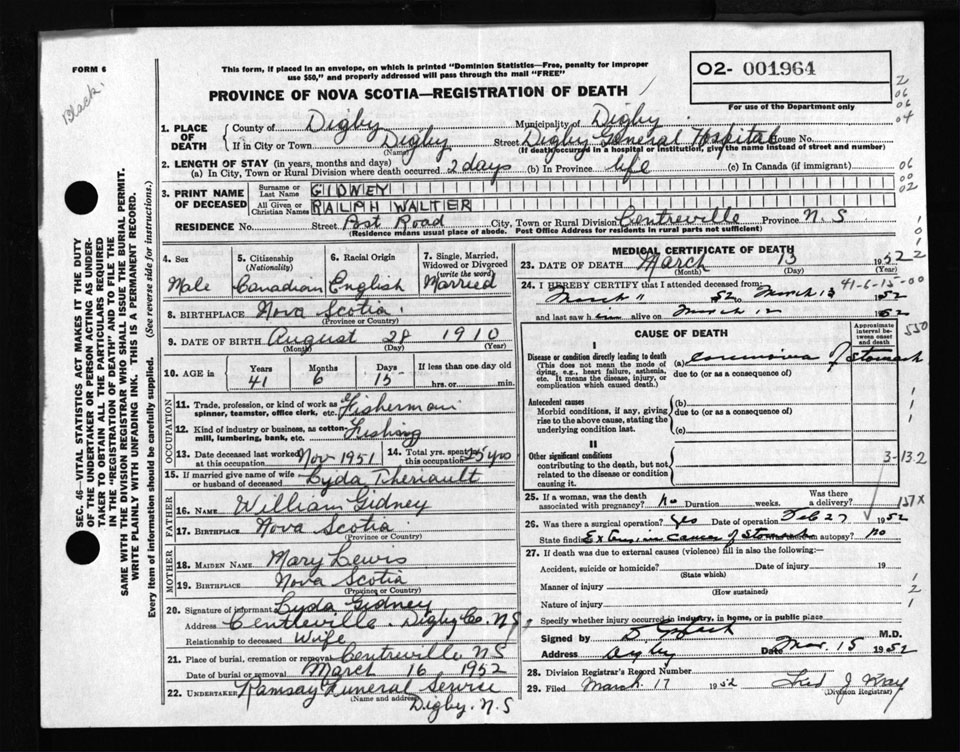 FORM 6
Black.
This form, if placed in an envelope, on which is printed "Dominion Statistics—Free, penalty for improper
use $50," and properly addressed will pass through the mail "FREE"
PROVINCE OF NOVA SCOTIA—REGISTRATION OF DEATH
O2- 001964
For use of the Department only
2
06
06
04
1. PLACE OF DEATH
County of Digby Municipality of Digby
If in City or Town Digby Street Digby General Hospital House No.
(Name) (If death occurred in a hospital or institution, give the name instead of street and number)
2. LENGTH OF STAY (in years, months and days)
(a) In City, Town or Rural Division where death occurred 2 days (b) In Province life (c) In Canada (if immigrant)
06
00
02
3. PRINT NAME OF DECEASED
Surname or Last Name GIDNEY
All Given or Christian Names RALPH WALTER
RESIDENCE No. Street Post Road City, Town or Rural Division Centreville Province N.S
(Residence means usual place of abode. Post Office Address for residents in rural parts not sufficient)
4. Sex
Male
5. Citizenship (Nationality)
Canadian
6. Racial Origin
English
7. Single, Married, Widowed or Divorced (write the word)
Married
8. BIRTHPLACE Nova Scotia
(Province or Country)
9. DATE OF BIRTH August 28 1910
(Month) (Day) (Year)
10. AGE in Years Months Days If less than one day old
41 6 15 hrs. or min.
OCCUPATION
11. Trade, profession, or kind of work as spinner, teamster, office clerk, etc. Fisherman
12. Kind of industry or business, as cotton-mill, lumbering, bank, etc. Fishing
13. Date deceased last worked at this occupation Nov 1951 14. Total yrs. spent in this occupation 25 yrs
15. If married give name of wife or husband of deceased Lyda Theriault
FATHER
16. NAME William Gidney
17. BIRTHPLACE Nova Scotia
(Province or Country)
MOTHER
18. MAIDEN NAME Mary Lewis
19. BIRTHPLACE Nova Scotia
(Province or Country)
20. Signature of informant Lyda Gidney
Address Centreville Digby Co. N.S
Relationship to deceased Wife
21. Place of burial, cremation or removal Centreville N S
Date of burial or removal March 16 1952
22. UNDERTAKER Ramsay Funeral Service
(Name and address) Digby. N.S
MEDICAL CERTIFICATE OF DEATH
23. DATE OF DEATH March 13 1952
(Month) (Day) (Year)
24. I HEREBY CERTIFY that I attended deceased from: 41-6-15-00
March 11 1952 to March 13 1952
and last saw him alive on March 12 1952
CAUSE OF DEATH
Approximate interval between onset and death
550
I
Disease or condition directly leading to death (a) Carcinoma of Stomach
(This does not mean the mode of dying, e.g., heart failure, asthenia, etc. It means the disease, injury, or complication which caused death.)
due to (or as a consequence of)
Antecedent causes
Morbid conditions, if any, giving rise to the above cause, stating the underlying condition last.
(b)
due to (or as a consequence of)
(c)
II
Other significant conditions
contributing to the death, but not related to the disease or condition causing it.
3-13.2
25. If a woman, was the death associated with pregnancy? No Duration weeks. Was there a delivery?
157X
26. Was there a surgical operation? Yes Date of operation Feb 27 1952
State findings Extensive Cancer of Stomach autopsy? No
27. If death was due to external causes (violence) fill in also the following:—
Accident, suicide or homicide? Date of injury 19
(State which)
Manner of injury
(How sustained)
Nature of injury
Specify whether injury occurred in industry, in home, or in public place
Signed by M.D.
Address Digby Date Mar. 15 1952
28. Division Registrar's Record Number
29. Filed March 17 1952 Fred J Wray
(Division Registrar)
SEC. 46—VITAL STATISTICS ACT MAKES IT THE DUTY
OF THE UNDERTAKER OR PERSON ACTING AS UNDER-
TAKER TO OBTAIN ALL THE PARTICULARS REQUIRED
IN THE "REGISTRATION OF DEATH" AND TO FILE THE
SAME WITH THE DIVISION REGISTRAR WHO SHALL ISSUE THE BURIAL PERMIT.
WRITE PLAINLY WITH UNFADING INK. THIS IS A PERMANENT RECORD.
Every item of information should be carefully supplied. (See reverse side for instructions.)